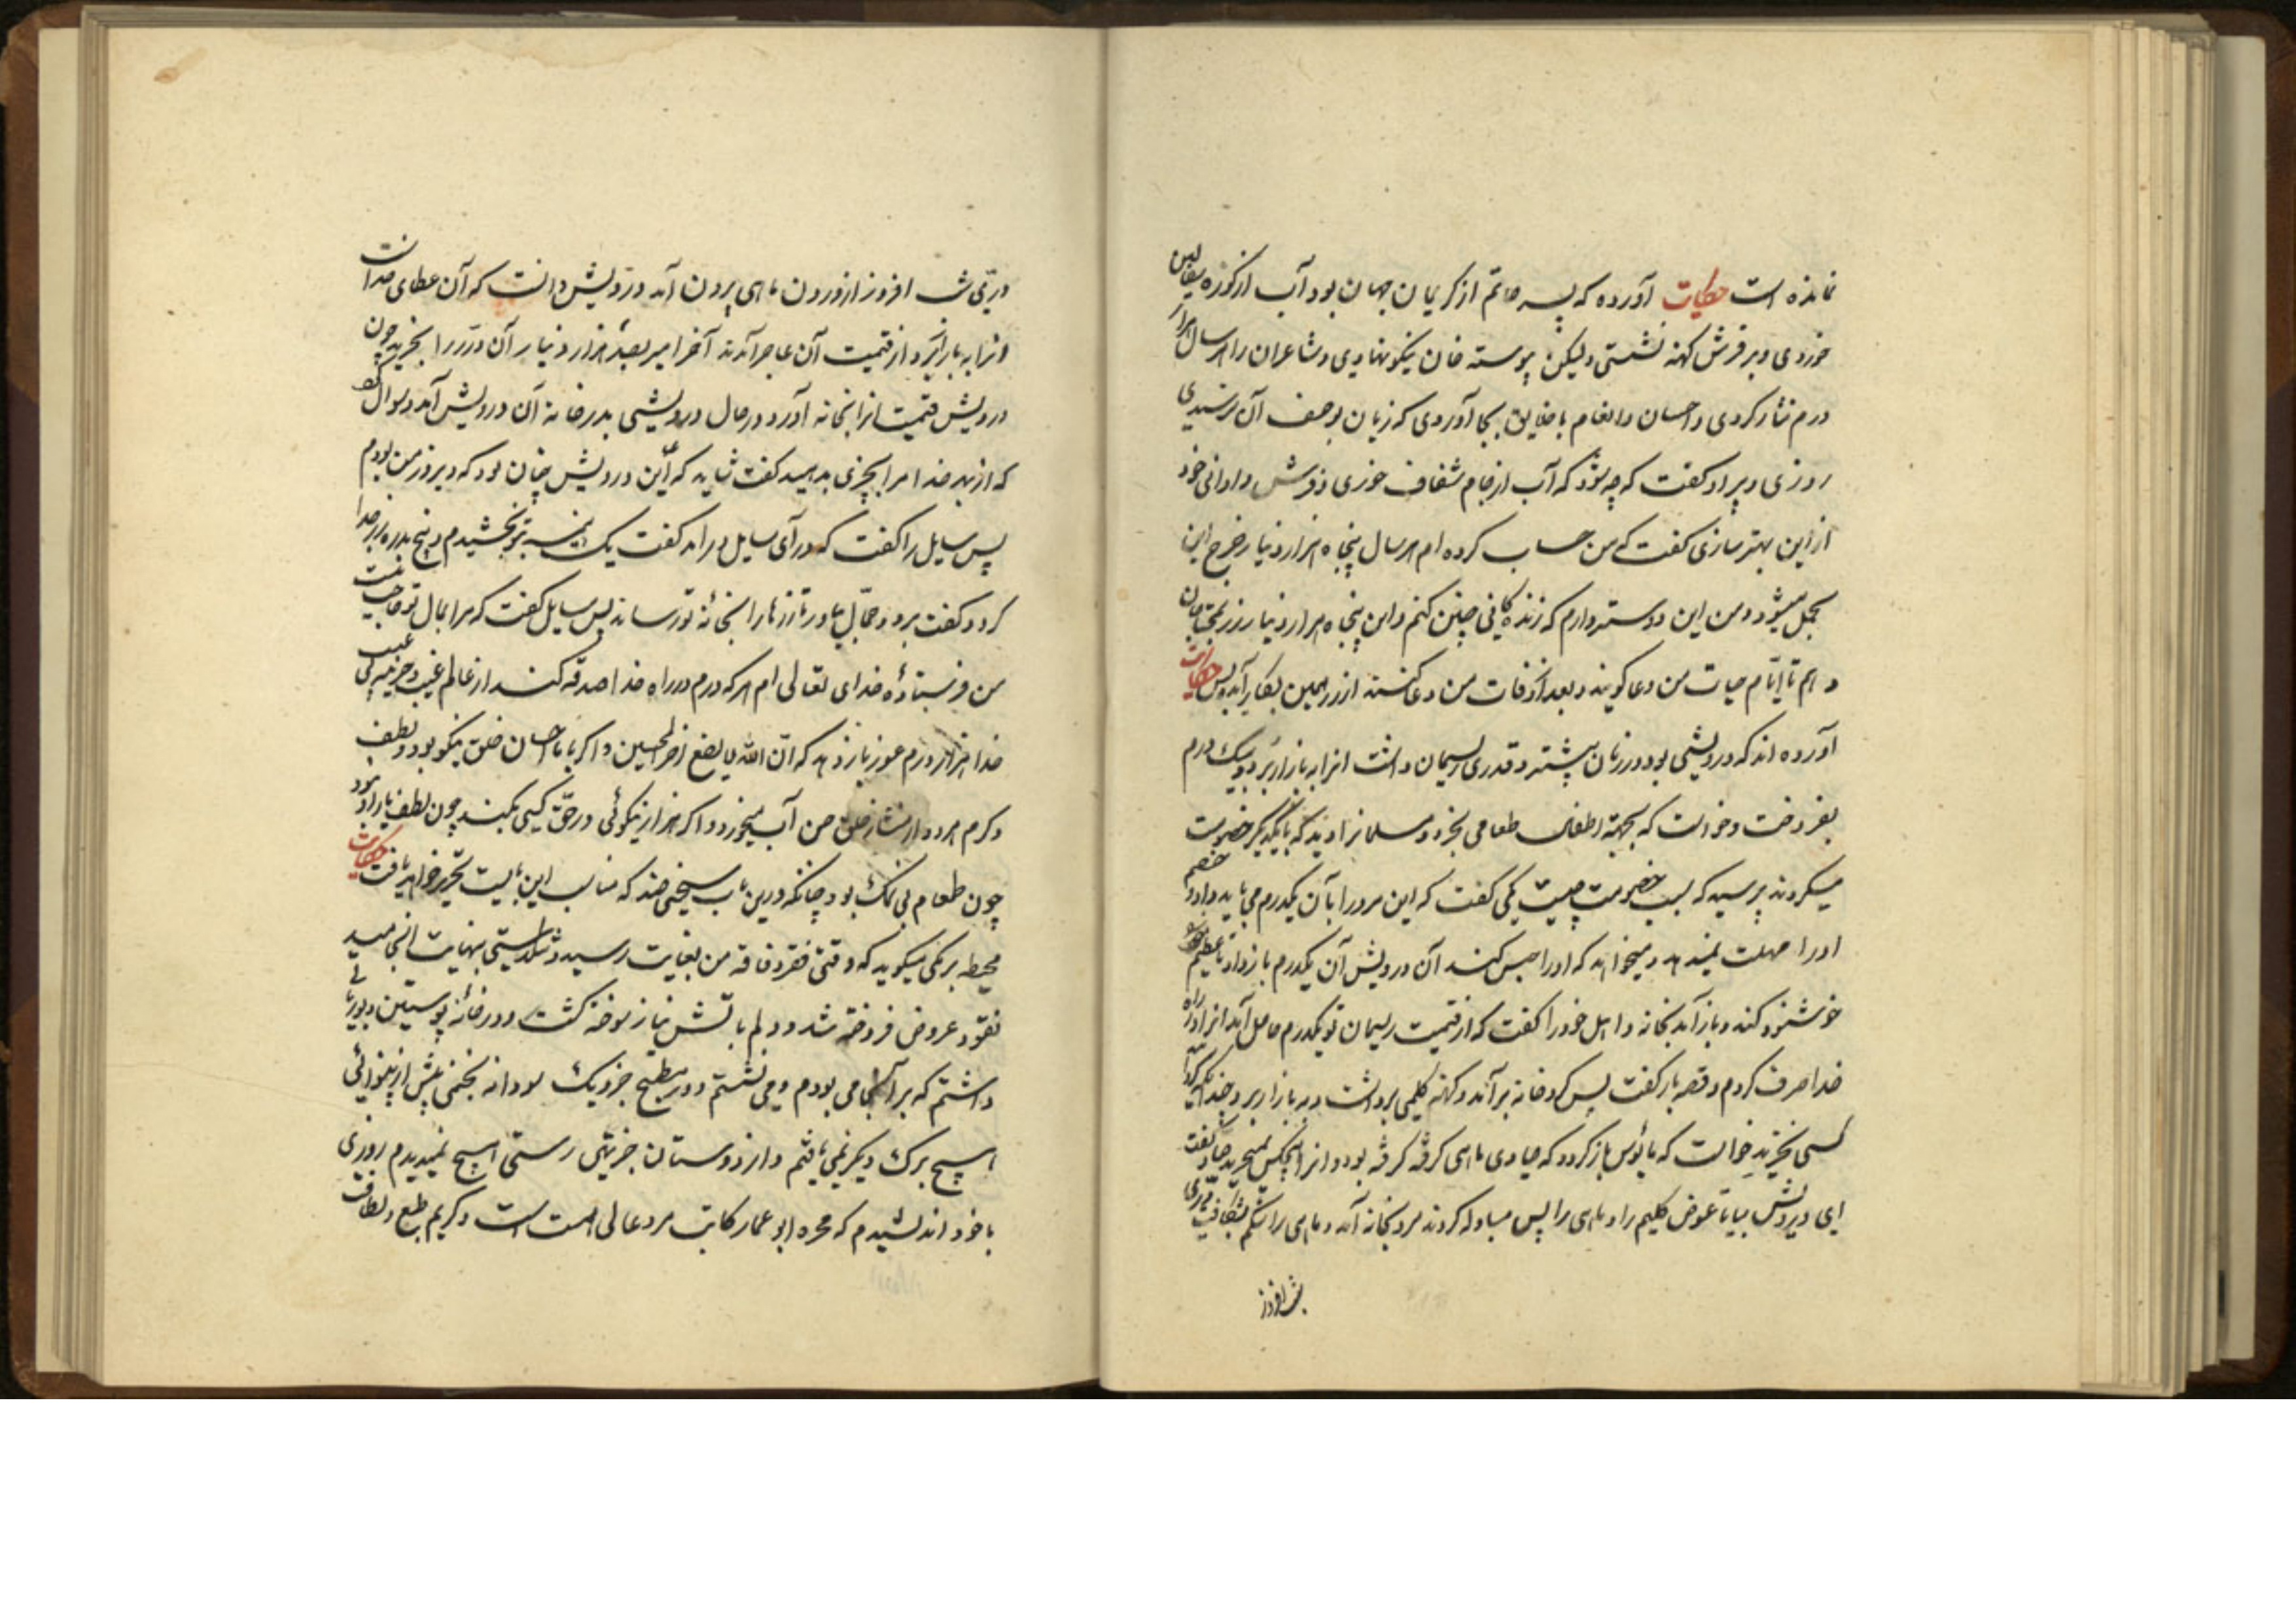 نمانده است حکایت آورده که پسر حاتم از کریمان جهان بود آب از کوزه سفالین
خوردی و بر فرش کهنه نشستی ولیکن پیوسته خان نیکو نهادی و شاعران را هر سال هزار
درم نثار کردی و احسان و انعام با خلایق بجا آوردی که زبان بوصف آن نرسیدی
روزی دبیر او گفت که چه شود که آب از جام شفاف خوری و فرش و اوانی خود
از این بهتر سازی گفت که من حساب کرده‌ام هر سال پنجاه هزار دینار خرج این
تجمل میشود و من این دوستر دارم که زندگانی چنین کنم و این پنجاه هزار دینار زر بمحتاجان
دهم تا ایام حیات من دعا گویند و بعد از وفات من دعا کنند از زر همین بکار آید و بس حکایت
آورده‌اند که درویشی بود در زمان پیشتر و قدری ریسمان داشت انرا به بازار برد و بیک درم
بفروخت و خواست که بجهة اطفال طعامی بخرد دو مسلمانرا دید که با یکدیگر خصومت
میکردند پرسید که سبب خصومت چیست یکی گفت که این مرد را بآن یکدرم می باید داد و خصم
او را مهلت نمیدهد و میخواهد که او را حبس کند آن درویش آن یکدرم باز داد تا خصم
خوشنود کند و باز آمد بخانه و اهل خود را گفت که از قیمت ریسمان تو یکدرم حاصل آمد انرا در راه
خدا صرف کردم و قصه باز گفت پس کرد خانه برآمد و کهنه کلیمی برداشت و به بازار برد و چندانکه کردید
کسی نخرید خواست که مایوس باز کردد که صیادی ماهی کرفته بود و انرا هیچکس نمیخرید صیاد گفت
ای درویش بیا تا عوض کلیم را و ماهی را پس مبادله کردند مرد بخانه آمد و ماهی را شکم بشکافت دری
شب افروز
دری شب افروز از درون ماهی بیرون آمد درویش دانست که آن عطای خداست
انرا به بازار برد از قیمت آن عاجز آمدند آخر امیر بصد هزار دینار آن در را بخرید چون
درویش قیمت انرا بخانه آورد در حال درویشی بدر خانه آن درویش آمد و سوال کرد
که از بهر خدا مرا چیزی بدهید گفت شاید که این درویش چنان بود که دیروز من بودم
پس سایل را گفت که درآی سایل درآمد گفت یک نیمه بتو بخشیدم و پنج بدره زر جدا
کرد و گفت برو و حمال بیاور تا زرها را بخانه تو رساند پس سایل گفت که مرا بمال تو حاجت نیست
من فرستاده خدای تعالی ام هر که درم در راه خدا صدقه کند از عالم غیب و خزینه غیب
خدا هزار درم عوض باز دهد که ان الله لا یضیع اجر المحسنین و اگر با احسان خلق نیکو بود و لطف
و کرم هر دو از نثار خلق حسن آب میخورد و اگر هزار نیکوئی در حق کسی بکند چون لطف یار او نبود
چون طعام بی نمک بود چنانکه درین باب سخنی چند که مناسب این بابست تحریر خواهد یافت حکایت
محیطه برمکی میگوید که وقتی فقر و فاقه من بغایت رسید و تنگدستی بنهایت انجامید
نقود و عروض فروخته شد و دلم باتش نیاز سوخته گشت و در خانه پوستین و بوریائی
داشتم که بر آنجا می بودم و می نشستم و در مطبخ جز دیک سودا نه پختمی پیش از بینوائی
هیچ برک دیگر نمی یافتم و از دوستان جز تهی دستی هیچ نمیدیدم روزی
با خود اندیشیدم که حمزه ابو عمار کاتب مرد عالی همت است و کریم طبع و لطافت